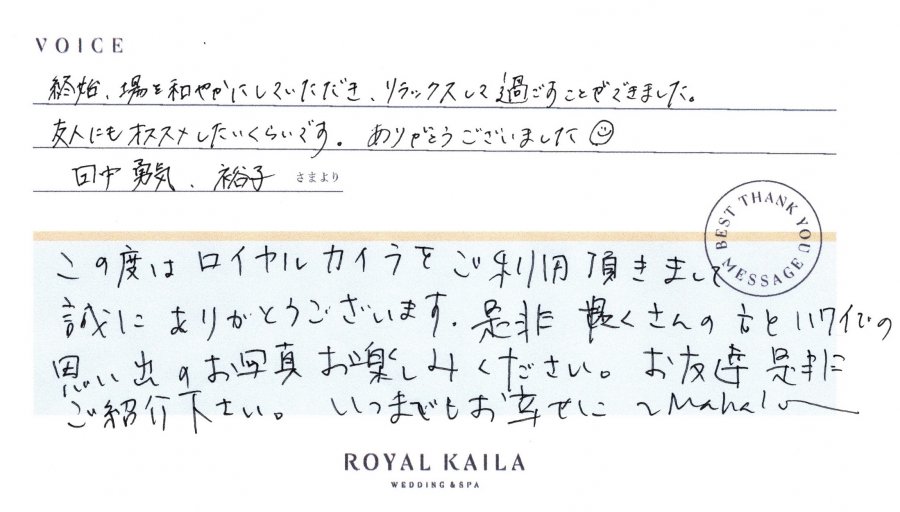 VOICE
終始、場を和やかにしていただき、リラックスして過ごすことができました。
友人にもオススメしたいくらいです。ありがとうございました
田中 勇気、裕子 さまより
BEST THANK YOU MESSAGE
この度はロイヤルカイラをご利用頂きまして
誠にありがとうございます。是非 たくさんの方とハワイでの
思い出のお写真お楽しみください。お友達是非に
ご紹介下さい。いつまでもお幸せに ~Mahalo~
ROYAL KAILA
WEDDING & SPA